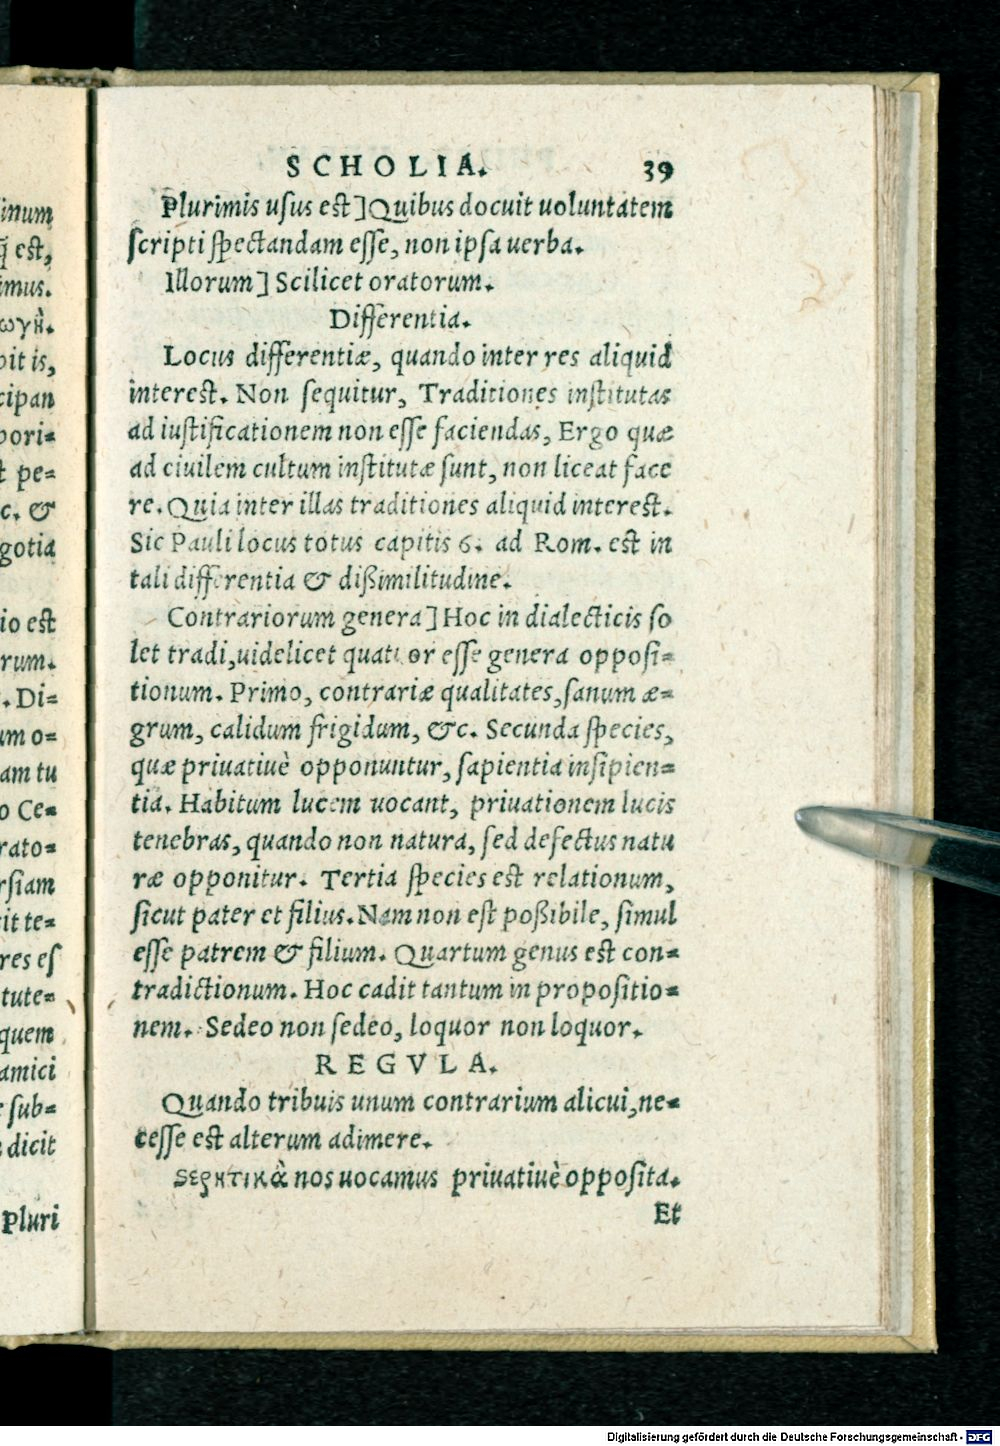 inum
q̃ est,
imus.
ωγὴ.
bit is,
cipan
pori=
t pe=
c. &
gotia
io est
rum.
. Di=
um o=
am tu
o Ce=
rato=
rsiam
it te=
res eſ
tute=
quem
amici
ſub=
dicit
Pluri
SCHOLIA. 39
Plurimis uſus est] Quibus docuit uoluntatem
ſcripti ſpectandam eſſe, non ipſa uerba.
Illorum] Scilicet oratorum.
Differentia.
Locus differentiæ, quando inter res aliquid
interest. Non ſequitur, Traditiones inſtitutas
ad iuſtificationem non eſſe faciendas, Ergo quæ
ad ciuilem cultum inſtitutæ ſunt, non liceat face
re. Quia inter illas traditiones aliquid interest.
Sic Pauli locus totus capitis 6. ad Rom. est in
tali differentia & dißimilitudine.
Contrariorum genera] Hoc in dialecticis ſo
let tradi, uidelicet quatuor eſſe genera oppoſi=
tionum. Primo, contrariæ qualitates, ſanum æ=
grum, calidum frigidum, &c. Secunda ſpecies,
quæ priuatiuè opponuntur, ſapientia inſipien=
tia. Habitum lucem uocant, priuationem lucis
tenebras, quando non natura, ſed defectus natu
ræ opponitur. Tertia ſpecies est relationum,
ſicut pater et filius. Nam non eſt poßibile, ſimul
eſſe patrem & filium. Quartum genus est con=
tradictionum. Hoc cadit tantum in propoſitio=
nem. Sedeo non ſedeo, loquor non loquor.
REGVLA.
Quando tribuis unum contrarium alicui, ne=
ceſſe est alterum adimere.
ςερητικὰ nos uocamus priuatiuè oppoſita.
Et
Digitalisierung gefördert durch die Deutsche Forschungsgemeinschaft - DFG